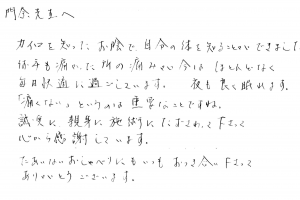 門奈先生へ
カイロを知ったお陰で、自分の体を知ることができました。
何年も痛かった体の痛みも今はほとんどなく
毎日快適に過ごしています。 夜も良く眠れます。
「痛くない」というのは重要なことですね。
誠実に親身に施術にたずさわって下さって
心から感謝しています。
たあいないおしゃべりにもいつもおつき合い下さって
ありがとうございます。